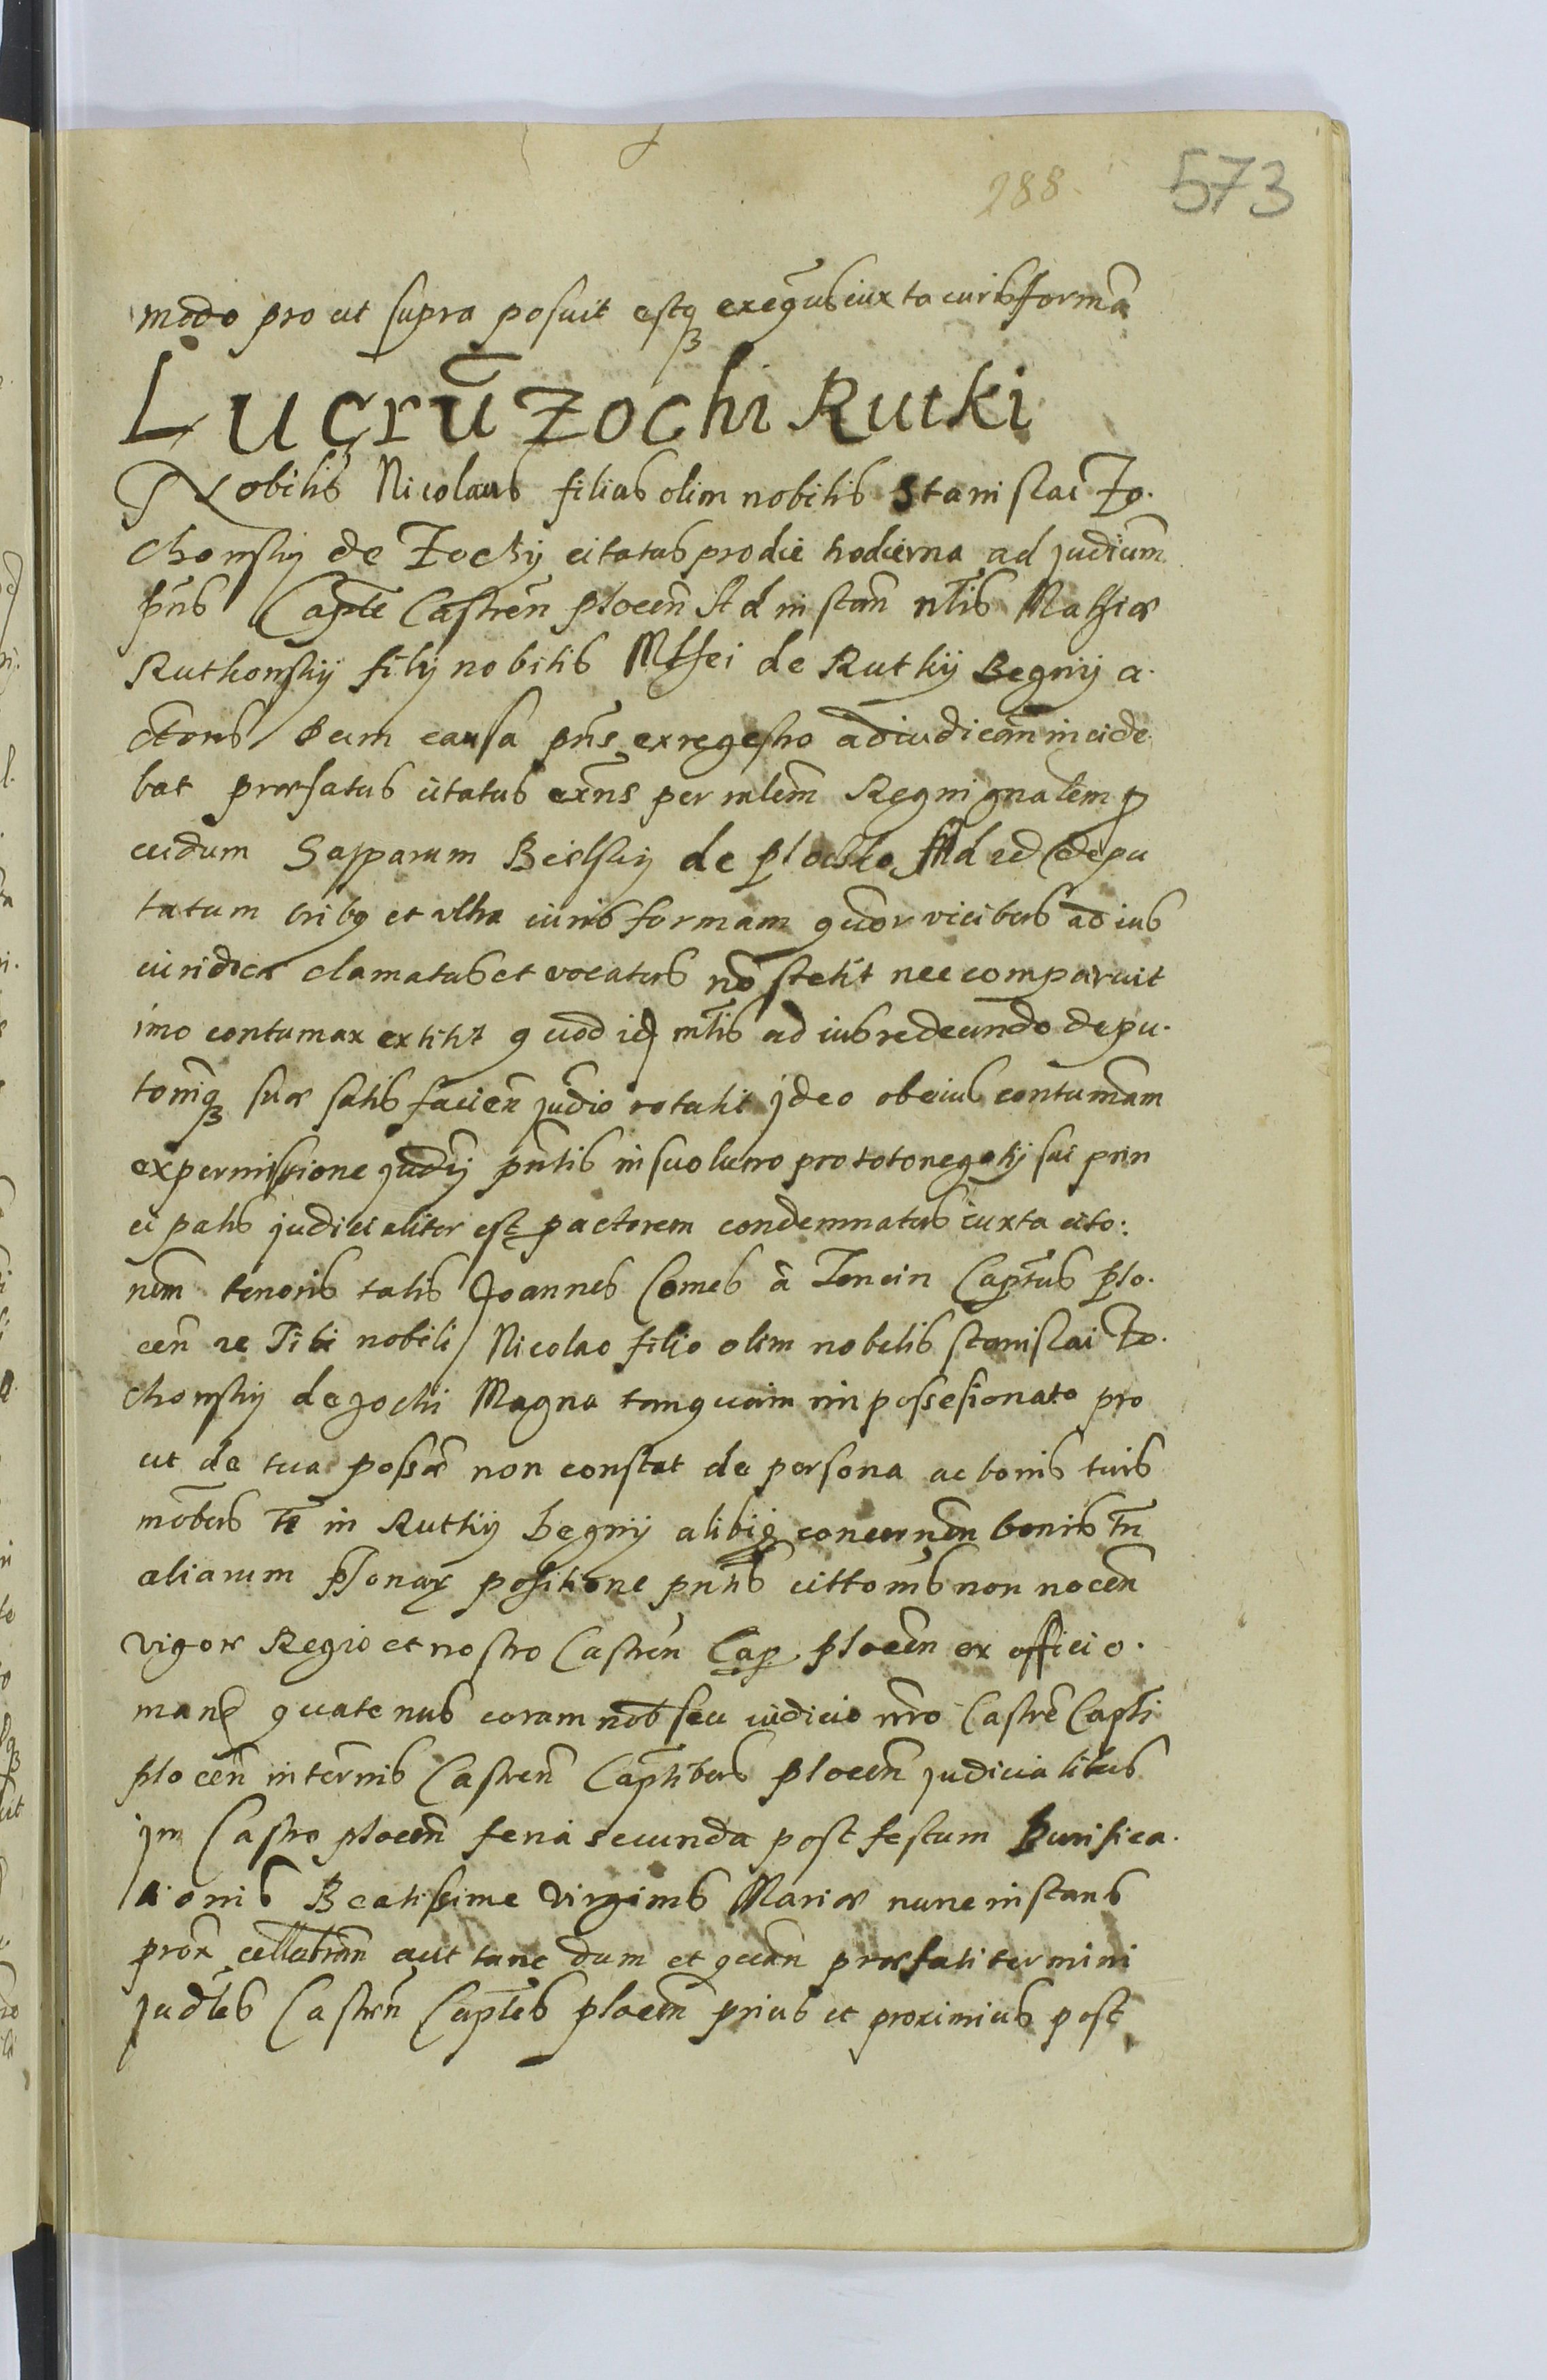 288 573
modo pro ut supra posuit estq exeqūs iuxta iuris formā
Lucrū Zochi Rutki
Nobilis Nicolaus filius olim nobilis Stanislai Zo.
chowsky de Zochy citatus pro die hodierna ad judicium
pn̄s Capte Castren̄ plocen̄ Ad instan̄ nblis Mathiæ
Ruthowsky filÿ nobilis Mthei de Rutky Begny a.
ctoris Dum causa pn̄s ex regestro adiudican̄ incide
bat præfatus citatus exn̄s per mlem̄ Regni gnalem p
cudum Gasparum Bielsky de plocko Ad id depu
tatum tribq et ultra iuris formam quor vicibus ad ius
iuridice clamatus et vocatus nō stetit nec comparuit
imo contumax extitit quod id mlis ad ius redeundo depu.
toniq suæ satis facien̄ judio retulit jdeo ob eius contumam
ex permissione judy pn̄tis in suo lucro pro toto negotÿ sui prin
ci palis judicialiter est p actorem condemnatus iuxta cito:
nem tenoris talis Joannes Comes à Tencin Captūs plo.
cen̄ re Tibi nobili Nicolao filio olim nobilis stanislai Zo.
chowsky de zochi Magna tanquam impossesionato pro
ut de tua possæ non constat de persona ac bonis tuis
mōbus te in Rutky begny alibiq concernen̄ bonis tn̄
aliarum psonar positione pn̄tis cittonis non nocen̄
vigore Regio et nostro Castren̄ Cap plocen̄ ex officio.
mand quatenus coram nob seu iudicio nro Castrē Capti
plocen̄ in termis Castren̄ Captibus plocen̄ judicialibus
jn Castro plocen̄ feria secunda post festum Purifica.
tionis Beatissime Virginis Mariæ nunc instans
prox cellabran̄ aut tunc dum et quan præfati termini
judles Castren̄ Captles plocen̄ prius et proximius post